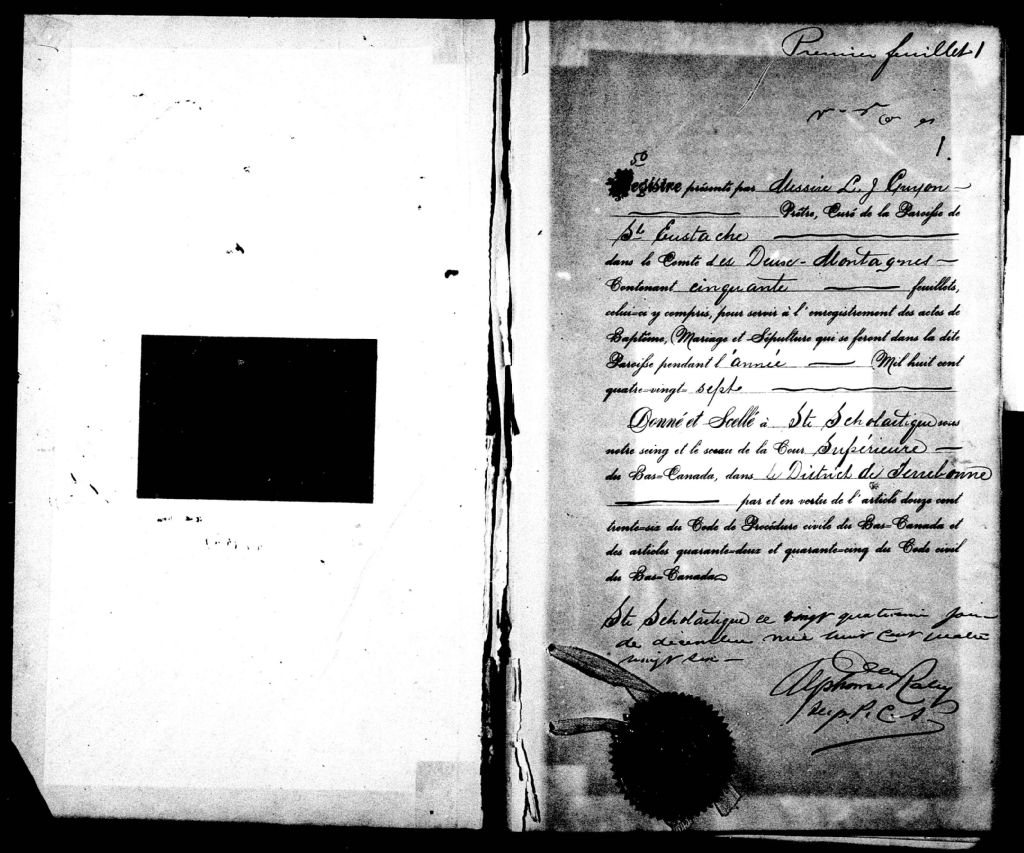 Premier feuillet 1
1.
50
Registre présenté par Messire L. J Guyon
Prêtre, Curé de la Paroisse de
Ste Eustache
dans le Comté des Deux-Montagnes
Contenant cinquante feuillets,
celui-ci y compris, pour servir à l'enregistrement des actes de
Baptême, Mariage et Sépulture qui se feront dans la dite
Paroisse pendant l'année Mil huit cent
quatre-vingt-sept
Donné et Scellé à Ste Scholastique sous
notre seing et le sceau de la Cour Supérieure
du Bas-Canada, dans le District de Terrebonne
par et en vertu de l'article douze cent
trente-six du Code de Procédure civile du Bas-Canada et
des articles quarante-deux et quarante-cinq du Code civil
du Bas-Canada
Ste Scholastique ce vingt quatrieme jour
de décembre mil huit cent quatre
vingt six
Alphonse